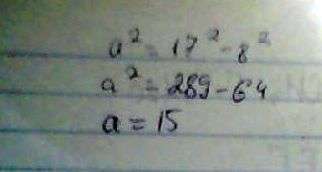 a² = 17² - 8²
a² = 289 - 64
a = 15